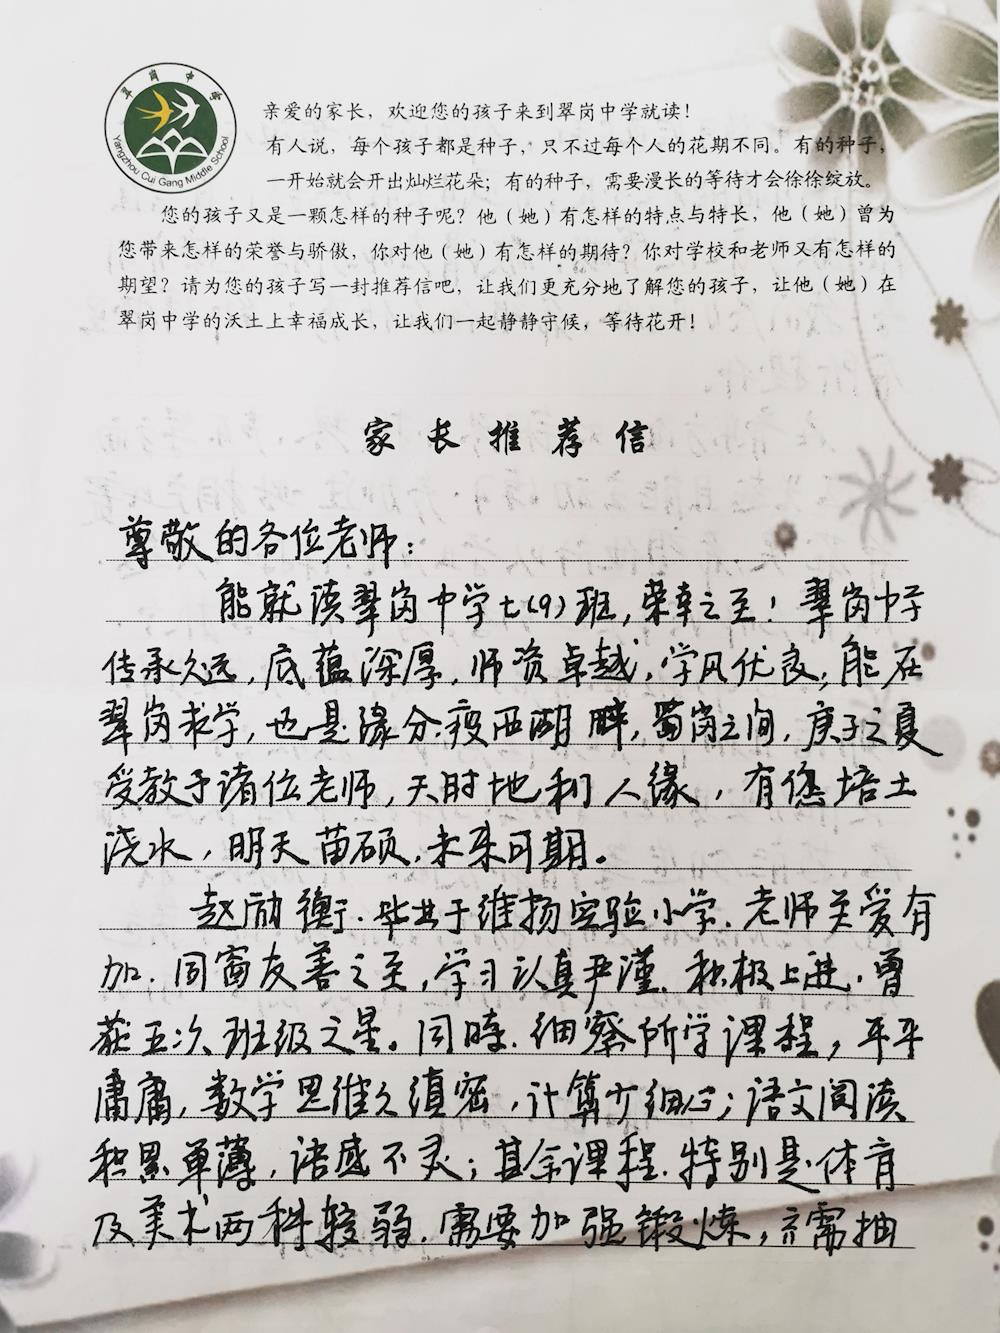 翠岗中学
Yangzhou Cui Gang Middle School
亲爱的家长，欢迎您的孩子来到翠岗中学就读！
有人说，每个孩子都是种子，只不过每个人的花期不同。有的种子，
一开始就会开出灿烂花朵；有的种子，需要漫长的等待才会徐徐绽放。
您的孩子又是一颗怎样的种子呢？他（她）有怎样的特点与特长，他（她）曾为
您带来怎样的荣誉与骄傲，你对他（她）有怎样的期待？你对学校和老师又有怎样的
期望？请为您的孩子写一封推荐信吧，让我们更充分地了解您的孩子，让他（她）在
翠岗中学的沃土上幸福成长，让我们一起静静守候，等待花开！
家长推荐信
尊敬的各位老师：
能就读翠岗中学七(9)班，荣幸之至！翠岗中学
传承久远，底蕴深厚，师资卓越，学风优良；能在
翠岗求学，也是缘分.瘦西湖畔，蜀岗之间，庚子之夏
受教于诸位老师，天时地利人缘，有您培土
浇水，明天苗硕，未来可期。
赵励衡.毕业于维扬实验小学.老师关爱有
加.同窗友善之至，学习认真严谨.积极上进.曾
获五次班级之星。同时.细察所学课程，平平
庸庸，数学思维欠缜密，计算少细心；语文阅读
积累单薄，语感不灵；其余课程.特别是体育
及美术两科较弱.需要加强锻炼，亦需抽